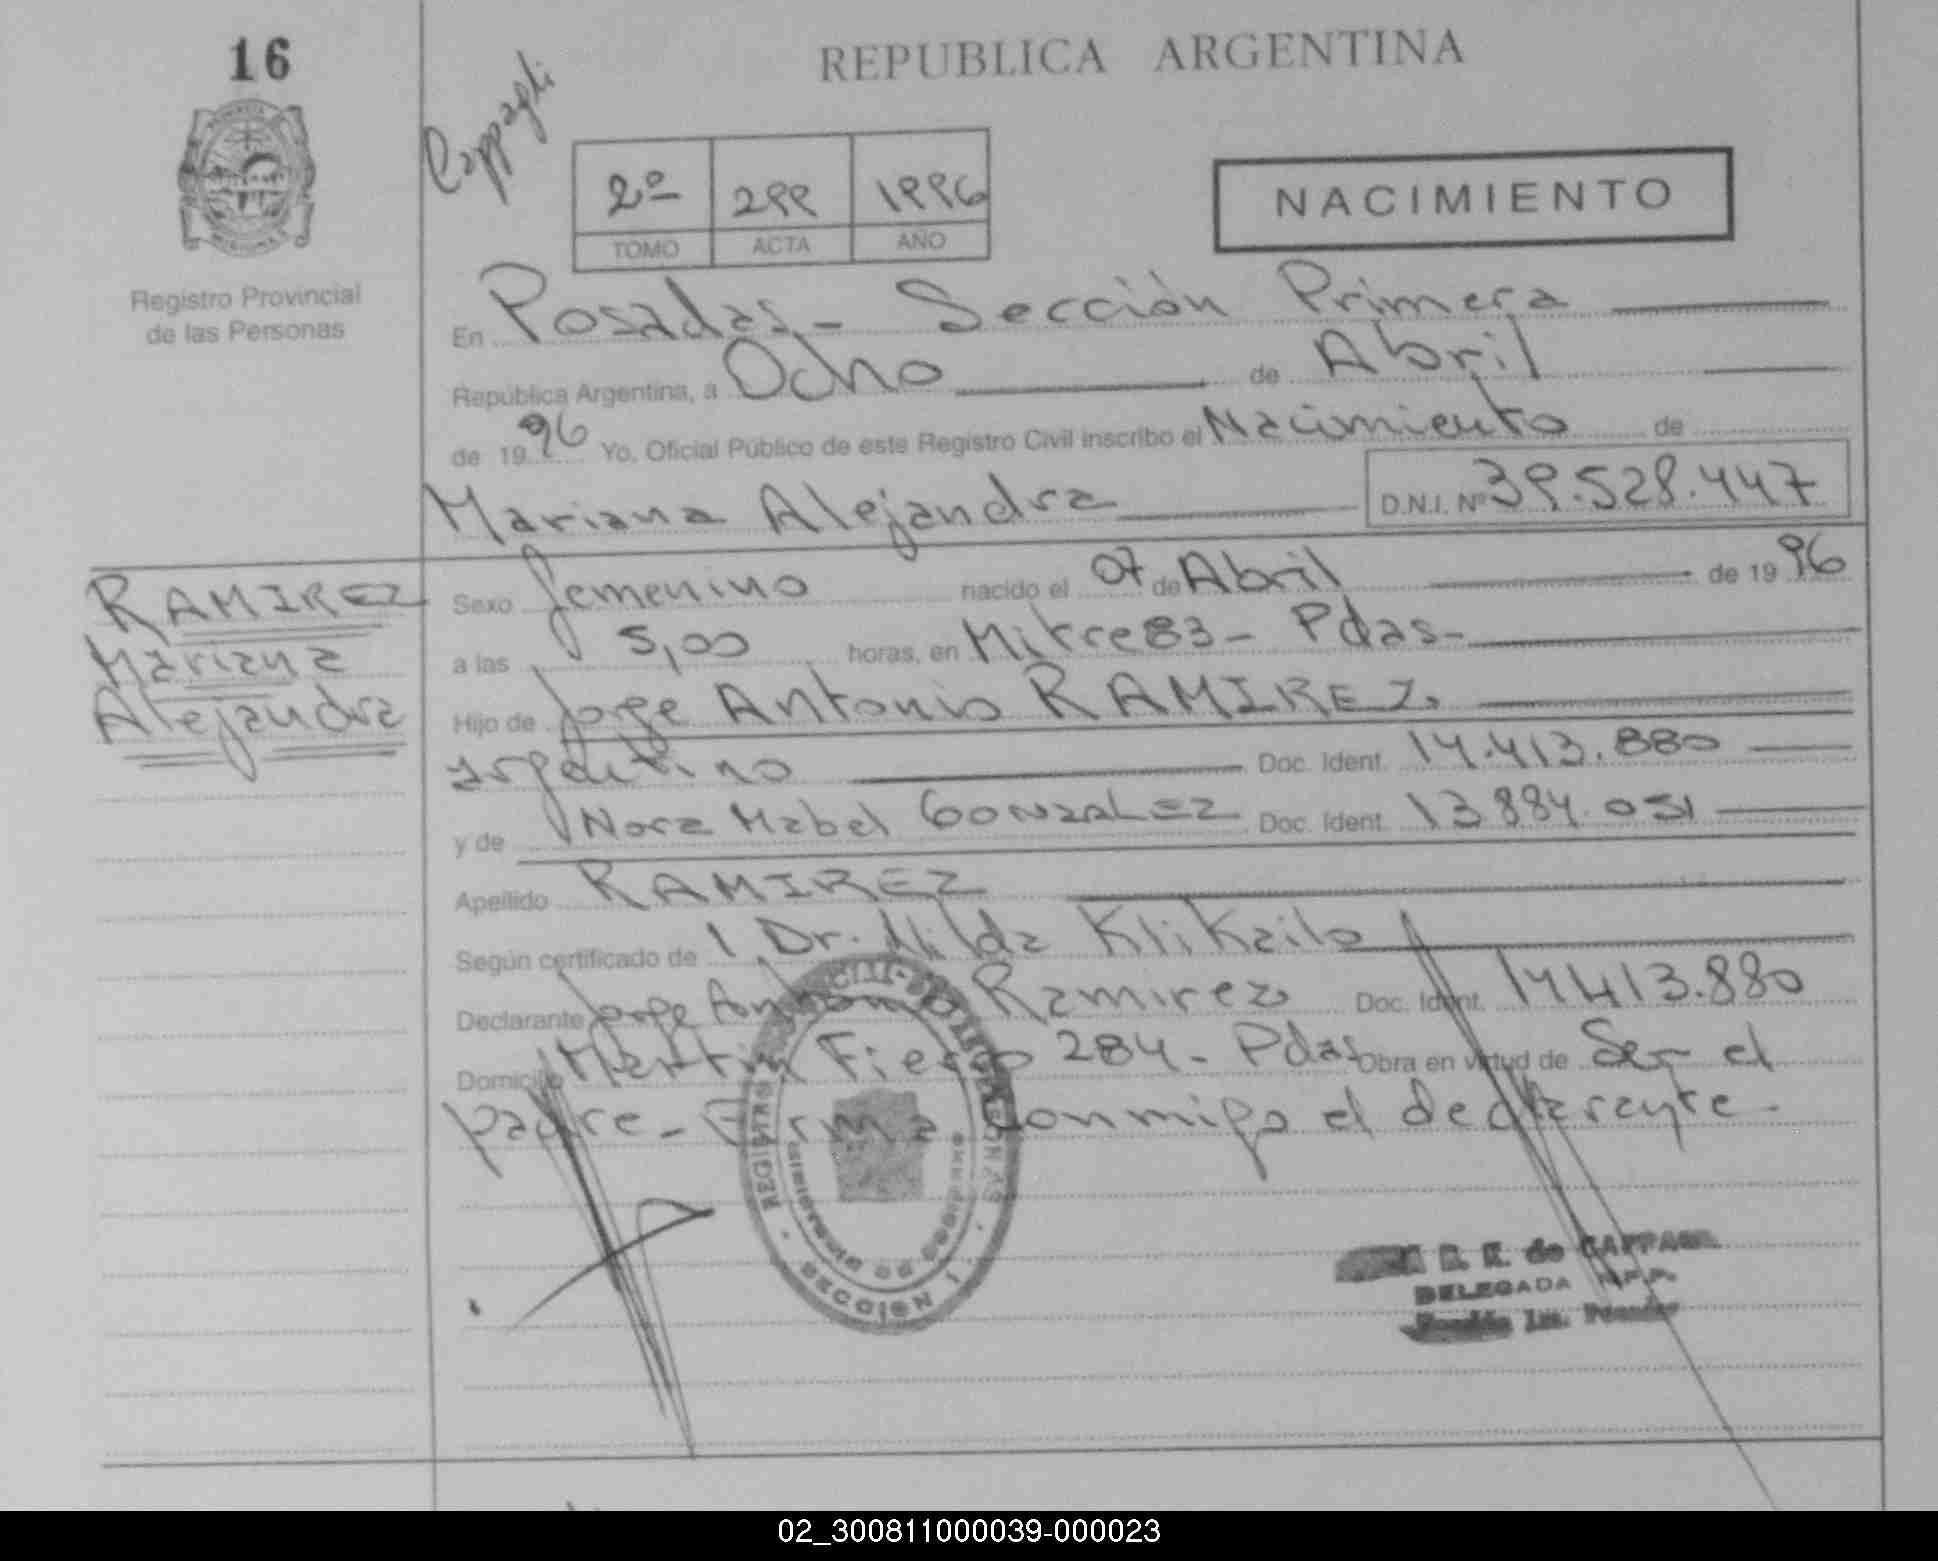 16
REPUBLICA ARGENTINA
Cappagli
2º 299 1996
TOMO ACTA AÑO
NACIMIENTO
Registro Provincial
de las Personas
En Posadas - Sección Primera
República Argentina, a Ocho de Abril
de 1996 Yo, Oficial Público de este Registro Civil inscribo el Nacimiento de
Mariana Alejandra D.N.I. Nº 39.528.447
RAMIREZ
Mariana
Alejandra
Sexo femenino nacido el 07 de Abril de 1996
a las 5,00 horas, en Mitre 83 - Pdas -
Hijo de Jorge Antonio RAMIREZ.
argentino Doc. Ident. 14.413.880
y de Nora Mabel GONZALEZ Doc. Ident. 13884.051
Apellido RAMIREZ
Según certificado de Dr. Nilda Klikailo
Declarante Jorge Antonio Ramirez Doc. Ident. 14413.880
Domicilio Martin Fierro 284 - Pdas Obra en virtud de Ser el
padre - Firma conmigo el declarante -
E. de CAPPAGLI
DELEGADA R.P.P.
Sección 1ra. Posadas
02_300811000039-000023